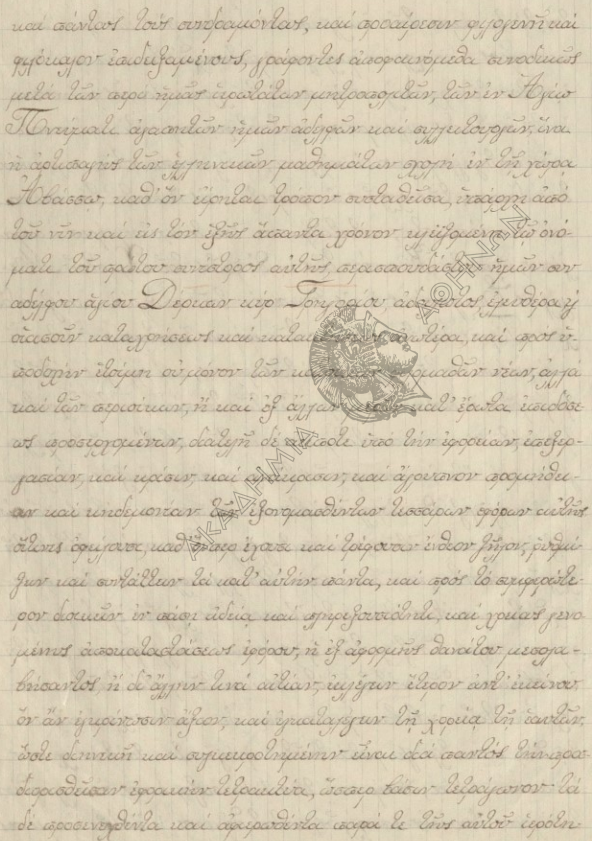 καὶ πάντας τοὺς συνδραμόντας, καὶ προαίρεσιν φιλογενῆ καὶ
φιλόκαλον ἐπιδειξαμένους, γράφοντες ἀποφαινόμεθα συνοδικῶς
μετὰ τῶν περὶ ἡμᾶς ἱερωτάτων μητροπολιτῶν, τῶν ἐν Ἁγίῳ
Πνεύματι ἀγαπητῶν ἡμῶν ἀδελφῶν καὶ συλλειτουργῶν, ἵνα
ἡ ἀρτιπαγὴς τῶν ἑλληνικῶν μαθημάτων σχολὴ ἐν τῇ χώρᾳ
Ἀβάσσῳ, καθ' ὃν εἴρηται τρόπον συσταθεῖσα, ὑπάρχῃ ἀπὸ
τοῦ νῦν καὶ εἰς τὸν ἑξῆς ἅπαντα χρόνον κλεϊζομένη τῷ ὀνό-
ματι τοῦ πρώτου συστάτορος αὐτῆς, περισπουδάστου ἡμῶν συν
αδέλφου ἁγίου Δέρκων κὺρ Γρηγορίου, ἀδούλωτος, ἐλευθέρα,
οἱασοῦν καταχρήσεως καὶ ἀνωτέρα, καὶ πρὸς ὑ-
ποδοχὴν ἑτοίμη οὐ μόνον τῶν νέων, ἀλλὰ
καὶ τῶν περιοίκων, ἢ καὶ ἐξ ἄλλων κατ' ἔρωτα ἐπιδόσε-
ως προσερχομένων, διατελῇ δὲ ὑπὸ τὴν ἐφορείαν, ἐπεξερ-
γασίαν, καὶ κρίσιν, καὶ καὶ ἄγρυπνον προμήθει-
αν καὶ κηδεμονίαν τῶν ἐξονομασθέντων τεσσάρων ἐφόρων αὐτῆς
οἵτινες ὀφείλουσι, καθ' ὅνπερ ἔχουσι καὶ τρέφουσιν ἔνθεον ζῆλον, ῥυθμί-
ζειν καὶ συντάττειν τὰ κατ' αὐτὴν πάντα, καὶ πρὸς τὸ συμφερώτε-
ρον διοικεῖν ἐν πάσῃ ἀδείᾳ καὶ πληρεξουσιότητι, καὶ χρείας γενο
μένης ἀποκαταστάσεως ἐφόρου, ἢ ἐξ ἀφορμῆς θανάτου μεσολα-
βήσαντος, ἢ δι' ἄλλην τινὰ αἰτίαν, ἐκλέγειν ἕτερον ἀντ' ἐκείνου
ὃν ἂν ἐγκρίνωσιν ἄξιον, καὶ ἐγκαταλέγειν τῇ χορείᾳ τῇ ἑαυτῶν,
ὥστε διηνεκῆ καὶ συγκεκροτημένην εἶναι διὰ παντὸς τὴν προσ
διορισθεῖσαν ἐφορικὴν τετρακτύα, ὥσπερ βάσιν τετράγωνον· τὰ
δὲ προσενεχθέντα καὶ ἀφιερωθέντα παρά τε τῆς αὐτοῦ ἱερότη-
ΑΚΑΔΗΜΙΑ
ΑΘΗΝΩΝ